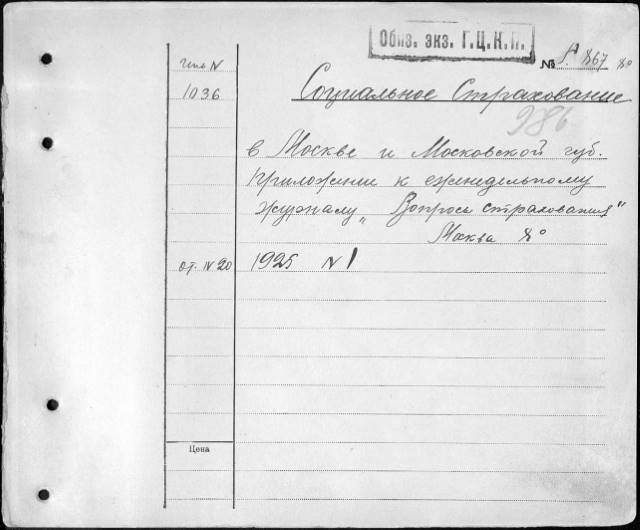 Обяз. экз. Г.Ц.К.П.
№ 867 8°
инв N
1036
Социальное Страхование
986
в Москве и Московской губ.
Приложение к еженедельному
журналу „Вопросы страхования"
Москва 8°
от. IV 20
1925 N 1
Цена